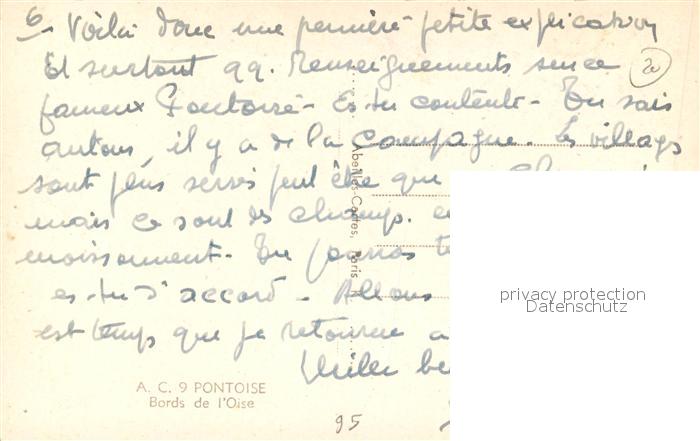 6. Voilà donc une première petite explication
Et surtout qq. Renseignements sur ce
fameux Pontoise - Es-tu contente - Tu sais
autour, il y a de la campagne. Les villages
sont plus serrés peut être que
mais ce sont des champs.
moissonnent. Tu pourras
es-tu d'accord - Allons
est temps que je retourne a
20
Abeilles-Cartes, Paris
privacy protection
Datenschutz
A. C. 9 PONTOISE
Bords de l'Oise
95